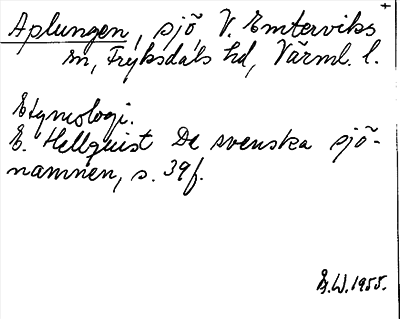 Aplungen, sjö, V. Emterviks
sn, Fryksdals hd, Värml. l.
Etymologi.
E. Hellquist De svenska sjö-
namnen, s. 39f.
G.W. 1955.